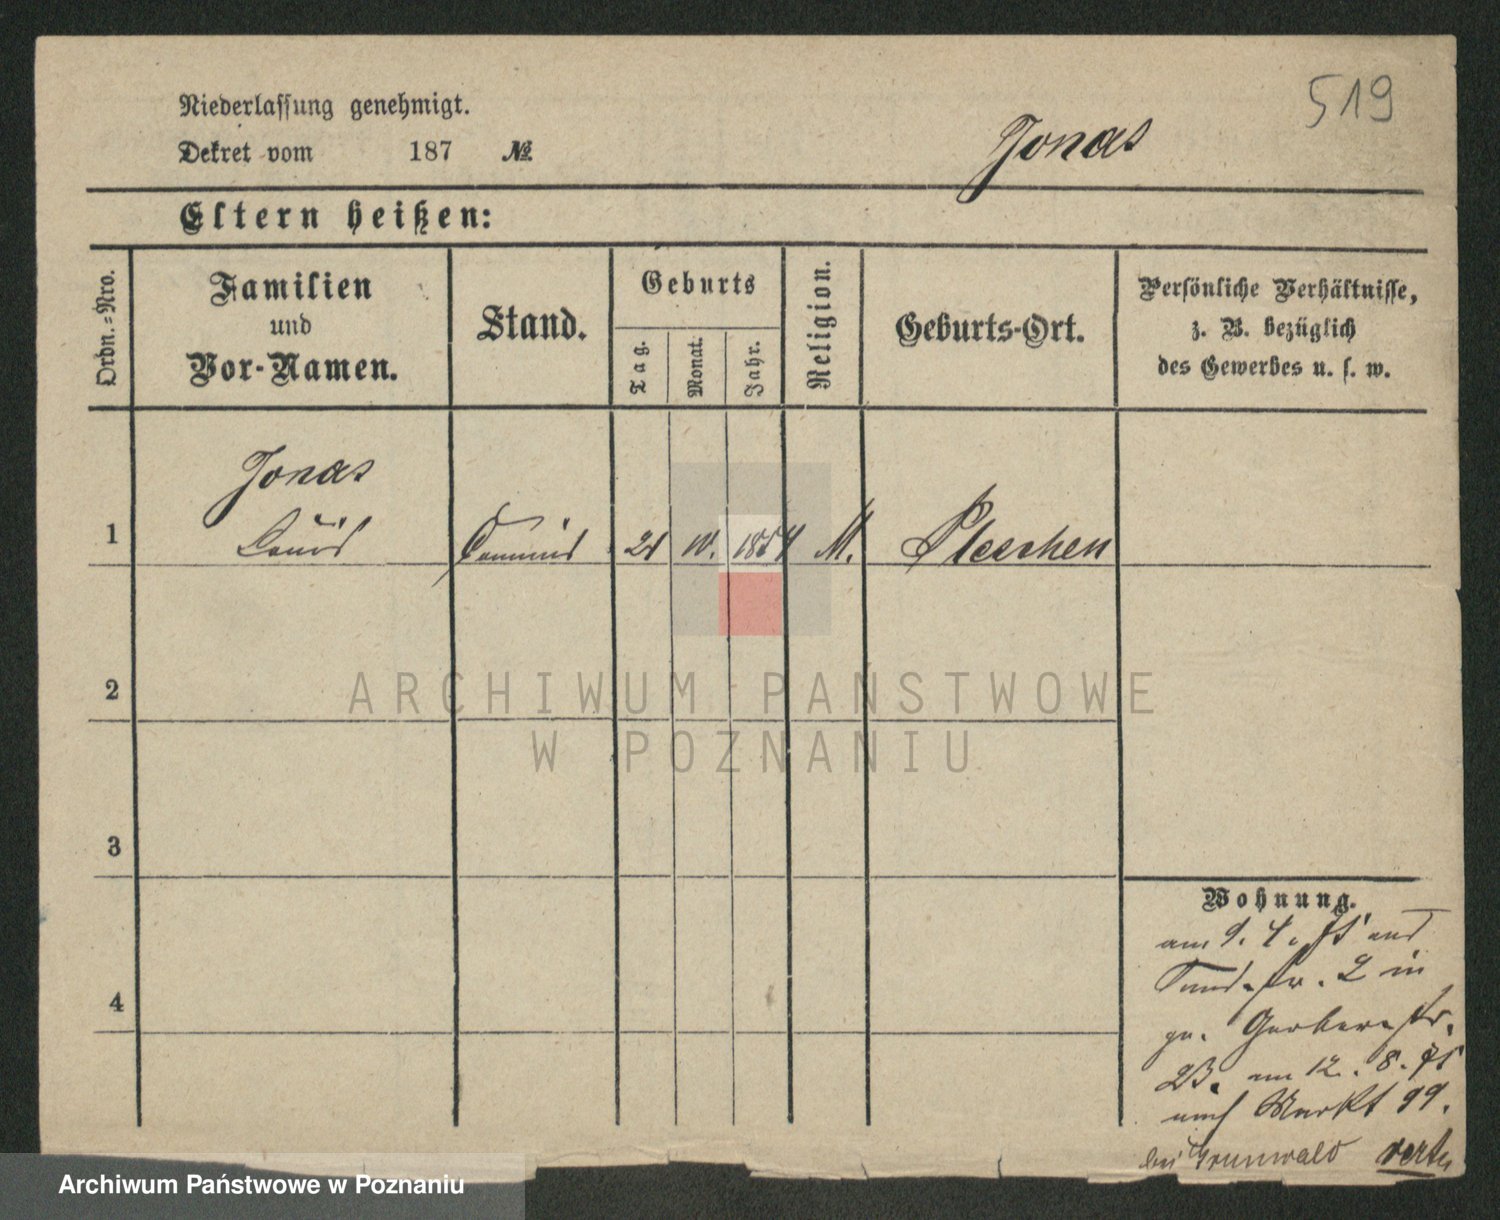 519
Niederlassung genehmigt.
Jonas
Dekret vom 187 №
Eltern heißen:
Ordn.=Nro.
Familien
und
Vor-Namen.
Stand.
Geburts
Tag.
Monat.
Jahr.
Religion.
Geburts-Ort.
Persönliche Verhältnisse,
z. B. bezüglich
des Gewerbes u. s. w.
Jonas
1 Louis Commis 21 10. 1854 M. Pleschen
2
3
4
Wohnung.
am 9. 4. 75 aus
Sand-str. 2 in
gr. Gerber-str.
23. am 12. 8. 75
nach Markt 99.
bei Grunwald verte
ARCHIWUM PAŃSTWOWE
W POZNANIU
Archiwum Państwowe w Poznaniu